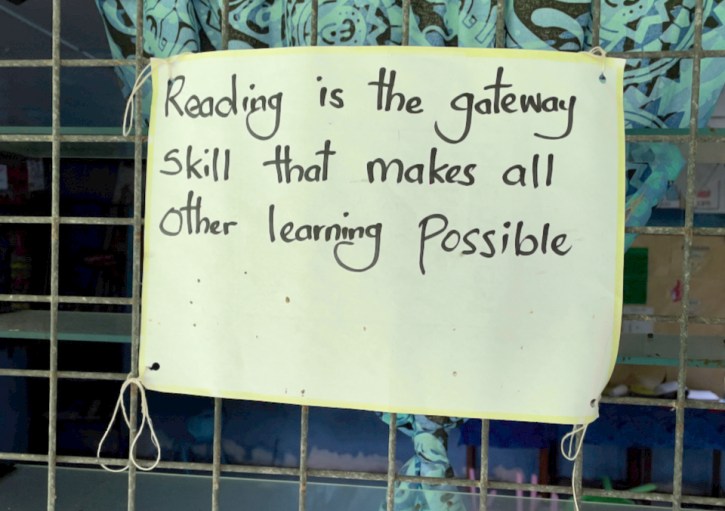 Reading is the gateway
Skill that makes all
Other learning Possible